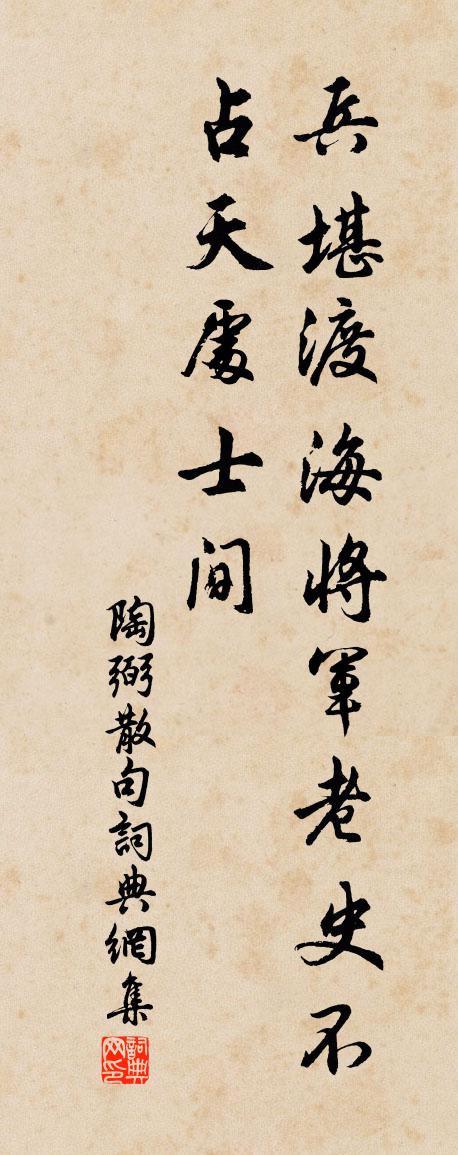 兵堪渡海將軍老史不
占天處士間
陶弼散句詞典網集
詞典
网印